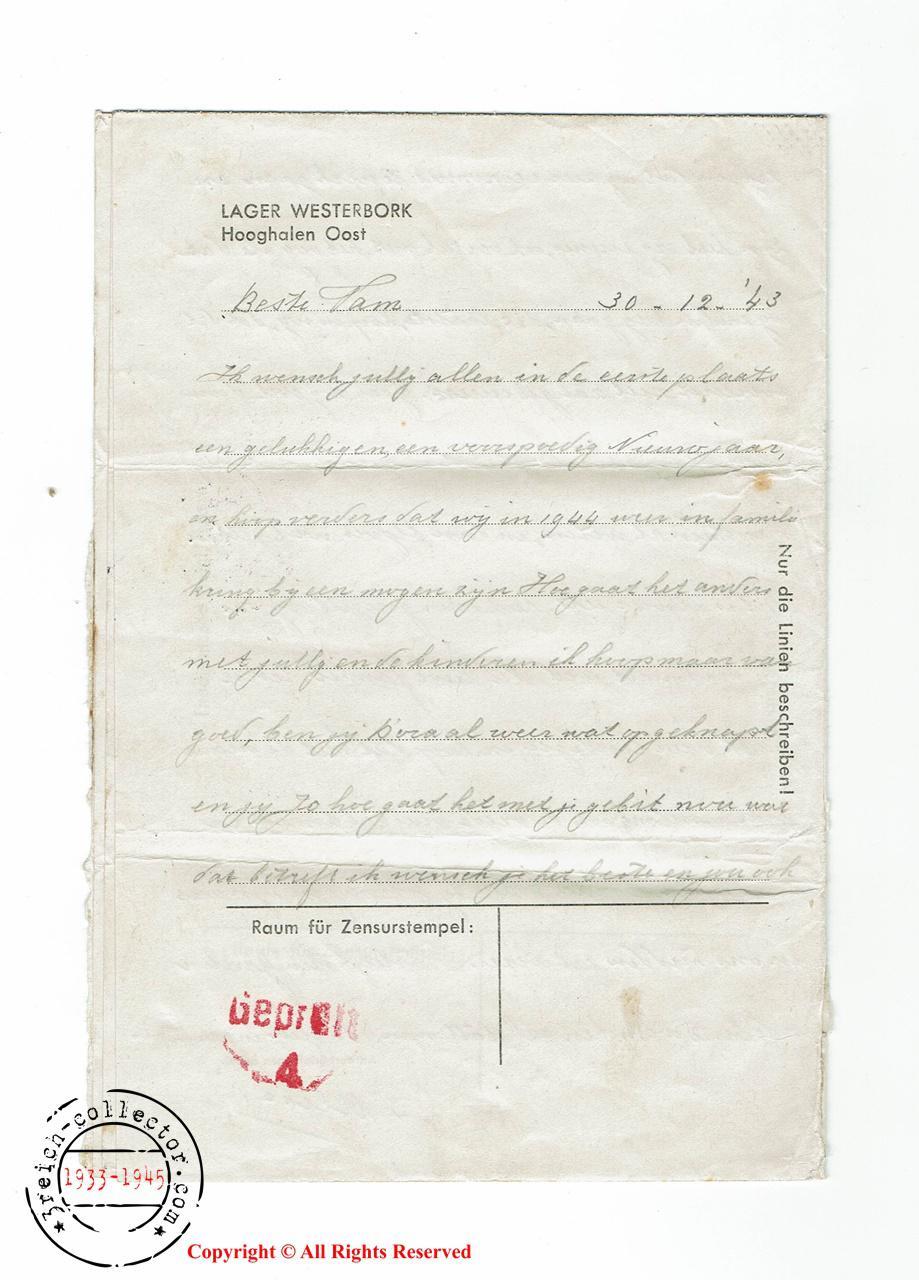 LAGER WESTERBORK
Hooghalen Oost
Beste Fam 30 - 12 - '43
Ik wensch jullij allen in de eerste plaats
een gelukkigen een voorspoedig Nieuwjaar,
en hoop verders dat wij in 1944 weer in familie
kring bij een mogen zijn Hoe gaat het anders
met jullij en de kinderen ik hoop maar van
goed, ben jij weer wat opgeknapt
en jij Jo hoe gaat het met je gebit nou wat
dat betreft ik wensch je het beste en jou ook
Nur die Linien beschreiben!
Raum für Zensurstempel:
Geprüft
4
3reich-collector.com
1933-1945
Copyright © All Rights Reserved